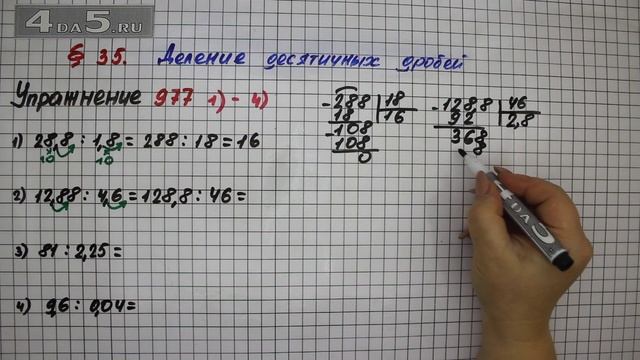 4DA5.RU
§ 35. Деление десятичных дробей
Упражнение 977 1) - 4)
1) 28,8 : 1,8 = 288 : 18 = 16
10 10
2) 12,88 : 4,6 = 128,8 : 46 =
3) 81 : 2,25 =
4) 9,6 : 0,04 =
- 288 | 18
18 | 16
- 108
108
0
- 128,8 | 46
92 | 2,8
368
8
4DA5